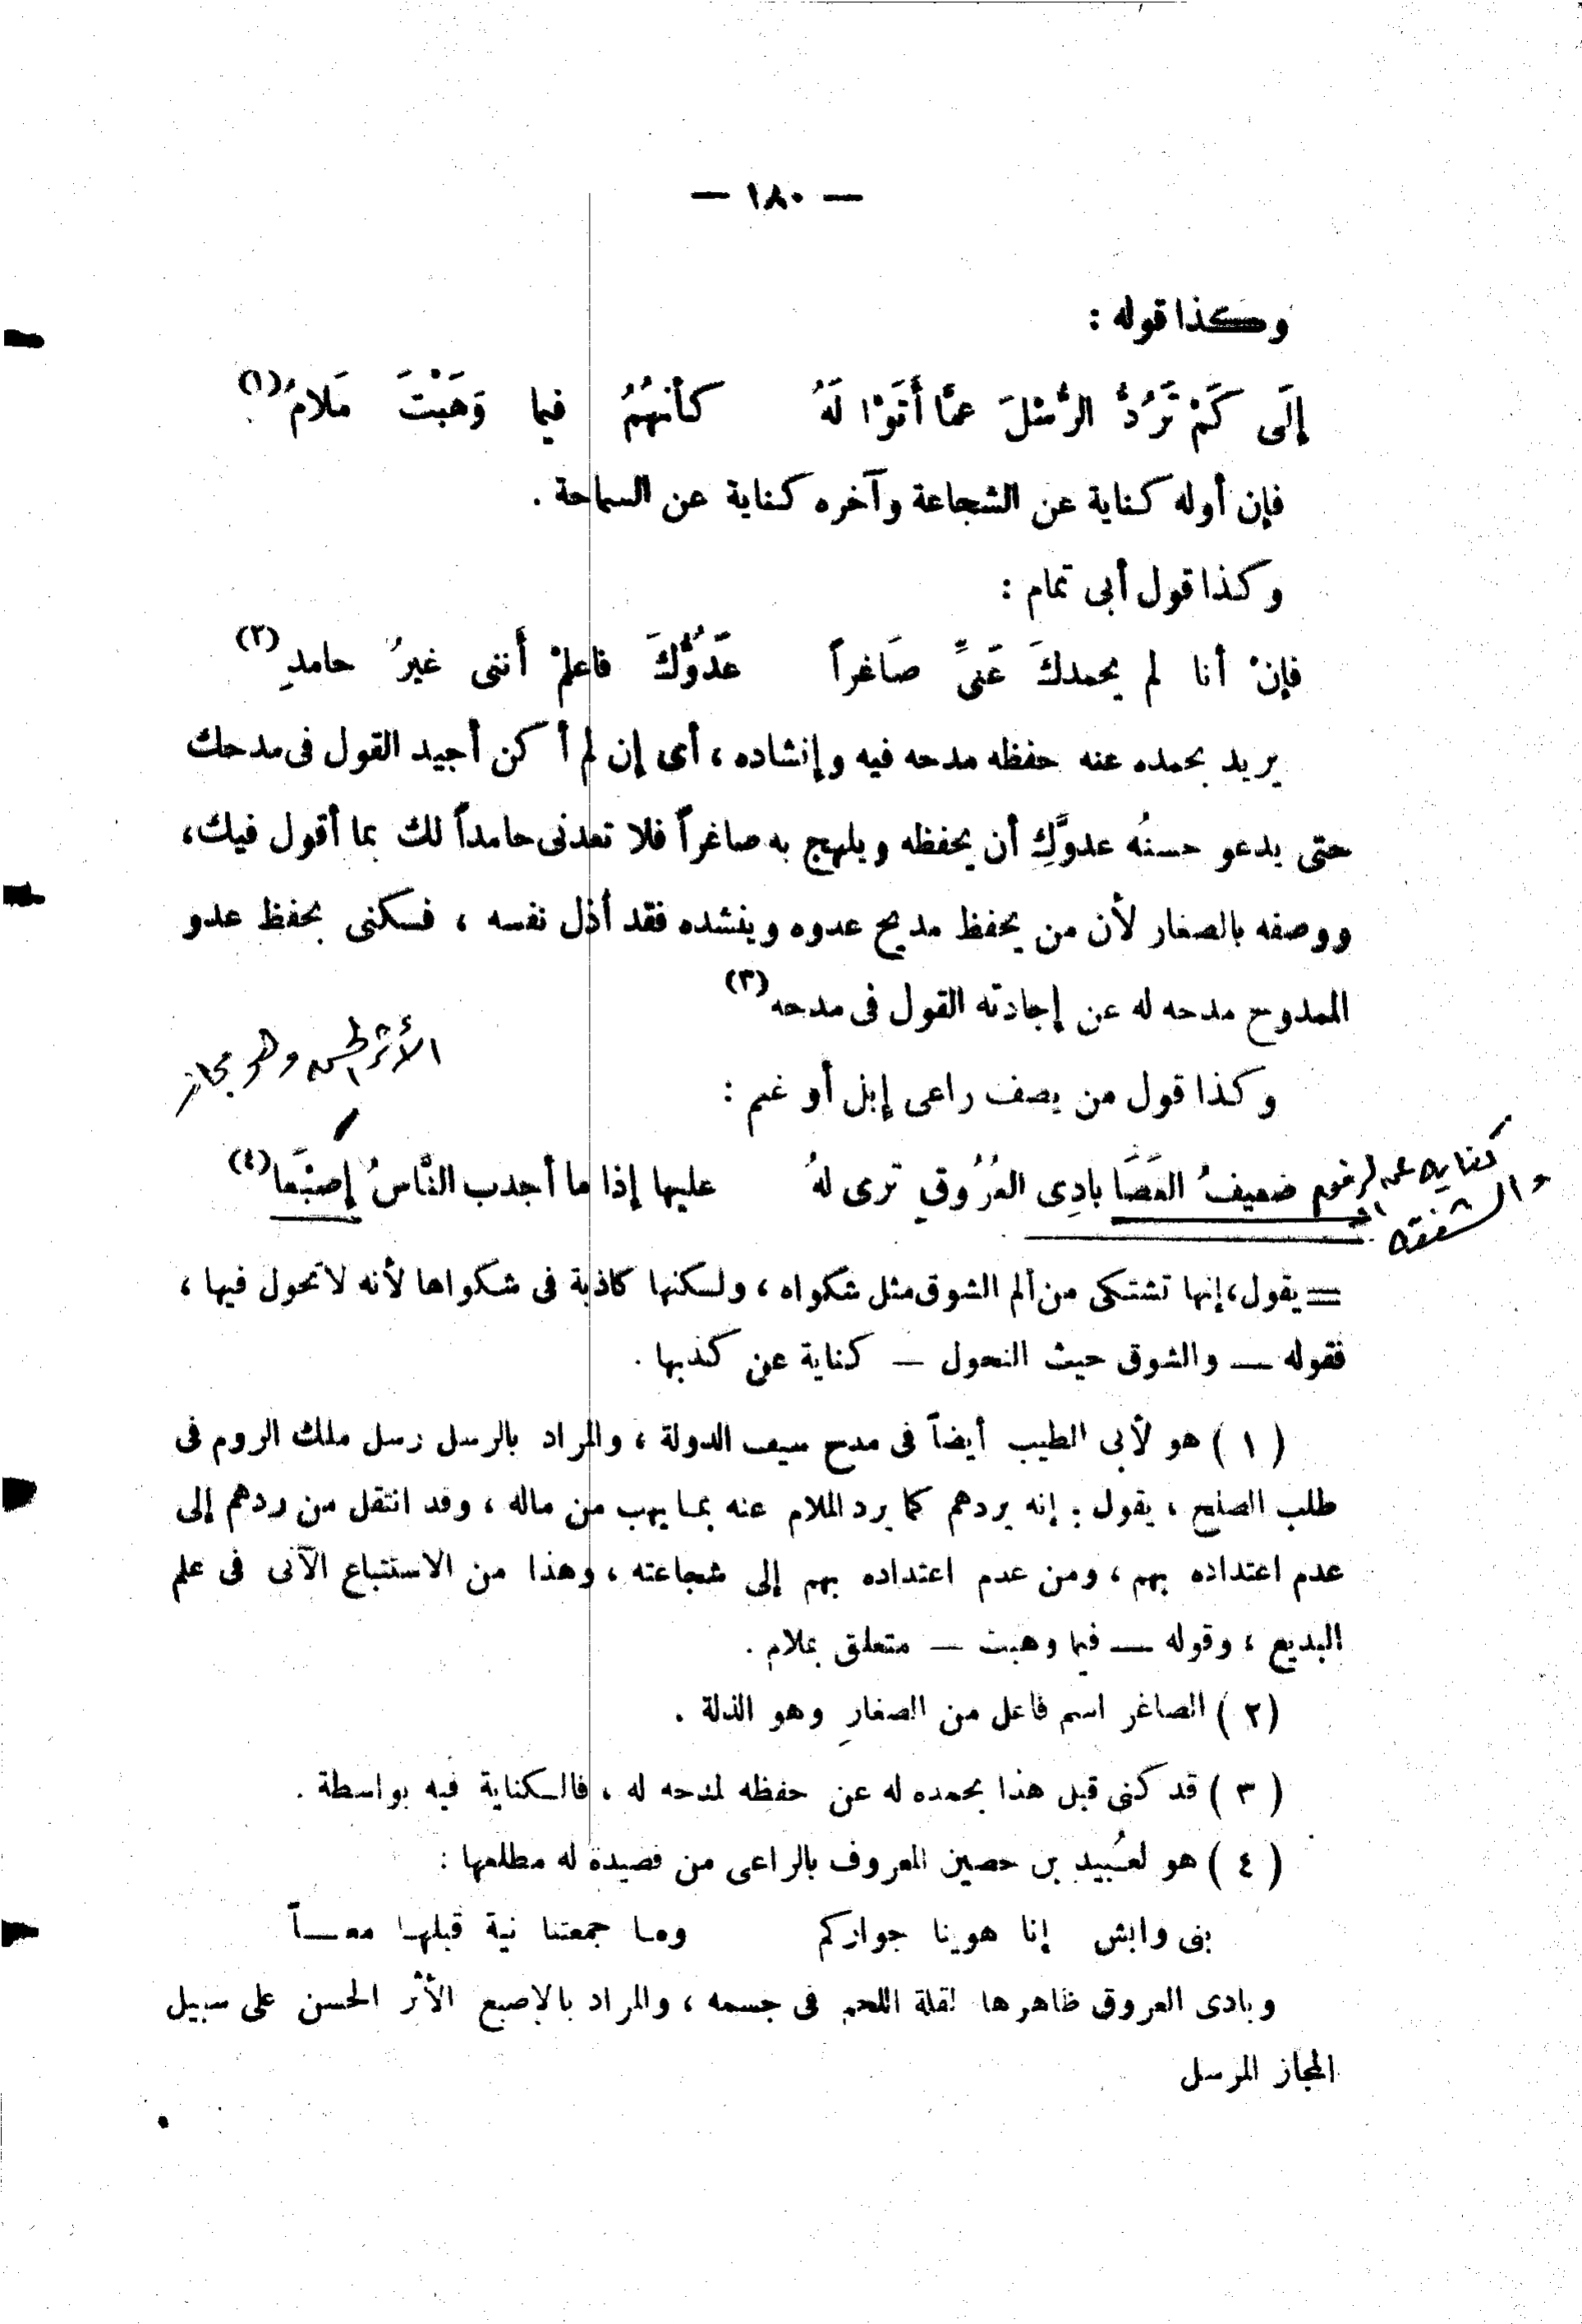 — ١٨٠ —
وكذا قوله :
إلَى كَمْ تَرُدُّ الرُّسْلَ عمَّا أَتَوْا لَهُ كأنهُمُ فيما وَهَبْتَ مَلامُ(١)
فإن أوله كناية عن الشجاعة وآخره كناية عن السماحة .
وكذا قول أبى تمام :
فإنْ أنا لم يحمدكَ عَنىِّ صَاغراً عَدُوُّكَ فاعلمْ أننى غيرُ حامدِ(٢)
يريد بحمده عنه حفظه مدحه فيه وإنشاده ، أى إن لم أكن أجيد القول فى مدحك
حتى يدعو حسنُه عدوَّك أن يحفظه ويلهج به صاغراً فلا تعدنى حامداً لك بما أقول فيك،
ووصفه بالصغار لأن من يحفظ مديح عدوه وينشده فقد أذل نفسه ، فكنى بحفظ عدو
الممدوح مدحه له عن إجادته القول فى مدحه(٣)
الأثر الحسن وهو مجاز
وكذا قول من يصف راعى إبل أو غنم :
كناية عن
والشفقة
ضعيفُ العَصَا بادِى العُرُوقِ ترى لهُ عليها إذا ما أجدب النَّاسُ إصْبَعَا(٤)
= يقول، إنها تشتكى من ألم الشوق مثل شكواه ، ولكنها كاذبة فى شكواها لأنه لا نحول فيها ،
فقوله — والشوق حيث النحول — كناية عن كذبها .
( ١ ) هو لأبى الطيب أيضاً فى مدح سيف الدولة ، والمراد بالرسل رسل ملك الروم فى
طلب الصلح ، يقول : إنه يردهم كما يرد الملام عنه بما يهب من ماله ، وقد انتقل من ردهم إلى
عدم اعتداده بهم ، ومن عدم اعتداده بهم إلى شجاعته ، وهذا من الاستتباع الآتى فى علم
البديع ، وقوله — فيما وهبت — متعلق بملام .
( ٢ ) الصاغر اسم فاعل من الصغار وهو الذلة .
( ٣ ) قد كنى قبل هذا بحمده له عن حفظه لمدحه له ، فالكناية فيه بواسطة .
( ٤ ) هو لعُبيد بن حصين المعروف بالراعى من قصيدة له مطلعها :
بنى وابش إنا هوينا جواركم وما جمعتنا نية قبلها معاً
وبادى العروق ظاهرها لقلة اللحم فى جسمه ، والمراد بالإصبع الأثر الحسن على سبيل
المجاز المرسل